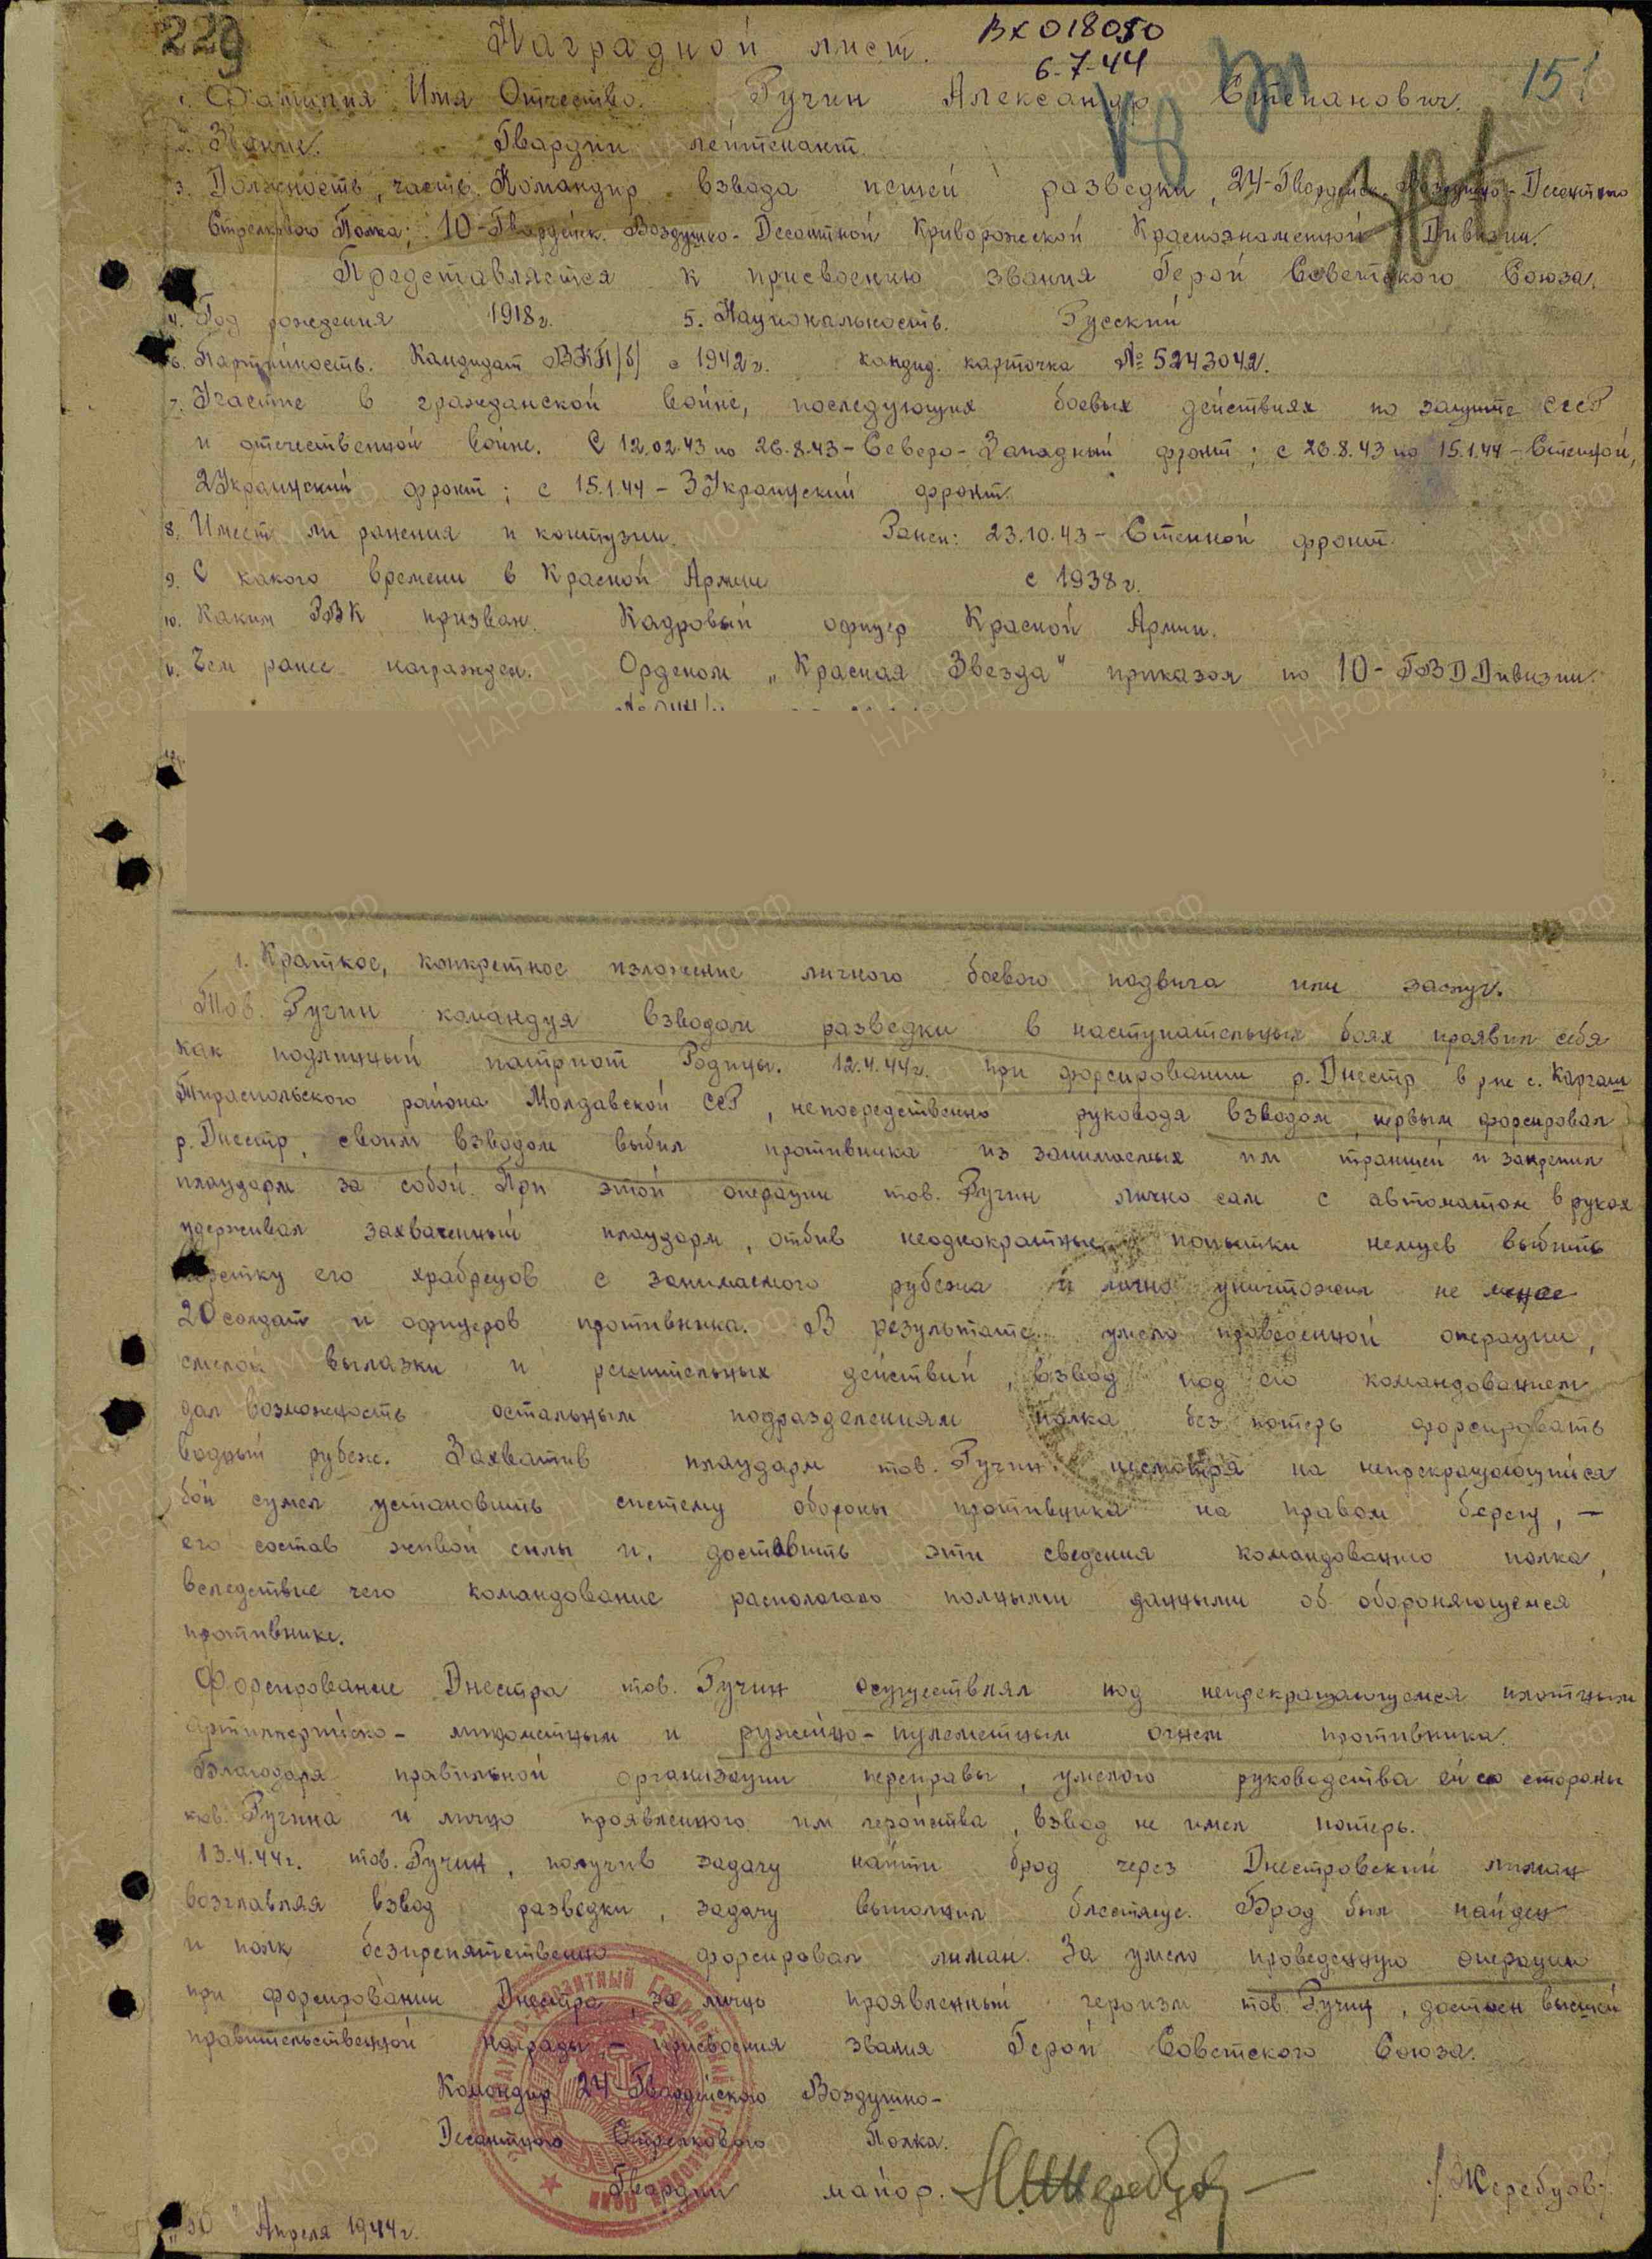 229
Наградной лист.
ВХ 018050
6-7-44
151
1. Фамилия Имя Отчество. Ручин Александр Степанович.
2. Звание. Гвардии лейтенант.
3. Должность, часть. Командир взвода пешей разведки, 24-Гвардейск. Воздушно-Десантного
Стрелкового Полка; 10-Гвардейск. Воздушно-Десантной Криворожской Краснознаменной Дивизии.
Представляется к присвоению звания Герой Советского Союза.
4. Год рождения 1918г. 5. Национальность. Русский
6. Партийность. Кандидат ВКП/б/ с 1942г. кандид. карточка № 5243042.
7. Участие в гражданской войне, последующих боевых действиях по защите СССР
и отечественной войне. С 12.02.43 по 26.8.43-Северо-Западный фронт; с 26.8.43 по 15.1.44-Степной,
2Украинский фронт; с 15.1.44-3Украинский фронт.
8. Имеет ли ранения и контузии. Ранен: 23.10.43-Степной фронт.
9. С какого времени в Красной Армии с 1938г.
10. Каким РВК призван. Кадровый офицер Красной Армии.
11. Чем ранее награжден. Орденом „Красная Звезда" приказом по 10-ГВДДивизии.
1. Краткое, конкретное изложение личного боевого подвига или заслуг.
Тов. Ручин командуя взводом разведки в наступательных боях проявил себя
как подлинный патриот Родины. 12.4.44г. при форсировании р. Днестр в р-не с. Карагаш
Тираспольского района Молдавской ССР, непосредственно руководя взводом, первым форсировал
р. Днестр, своим взводом выбил противника из занимаемых им траншей и закрепил
плацдарм за собой. При этой операции тов. Ручин лично сам с автоматом в руках
удерживал захваченный плацдарм, отбив неоднократные попытки немцев выбить
горстку его храбрецов с занимаемого рубежа и лично уничтожил не менее
20 солдат и офицеров противника. В результате умело проведенной операции,
смелой вылазки и решительных действий, взвод под его командованием
дал возможность остальным подразделениям полка без потерь форсировать
водный рубеж. Захватив плацдарм тов. Ручин, несмотря на непрекращающийся
бой сумел установить систему обороны противника на правом берегу, -
его состав живой силы и, доставить эти сведения командованию полка,
вследствие чего командование располагало полными данными об обороняющемся
противнике.
Форсирование Днестра тов. Ручин осуществлял под непрекращающемся плотным
артиллерийско-минометным и ружейно-пулеметным огнем противника.
Благодаря правильной организации переправы, умелого руководства ей со стороны
тов. Ручина и лично проявленного им геройства, взвод не имел потерь.
13.4.44г. тов. Ручин, получив задачу найти брод через Днестровский лиман
возглавляя взвод разведки, задачу выполнил блестяще. Брод был найден
и полк безпрепятственно форсировал лиман. За умело проведенную операцию
при форсировании Днестра, за лично проявленный героизм тов. Ручин, достоен высшей
правительственной награды - присвоения звания Герой Советского Союза.
Командир 24-Гвардейского Воздушно-
Десантного Стрелкового Полка.
Гвардии майор. /Жеребцов/.
Апреля 1944г.